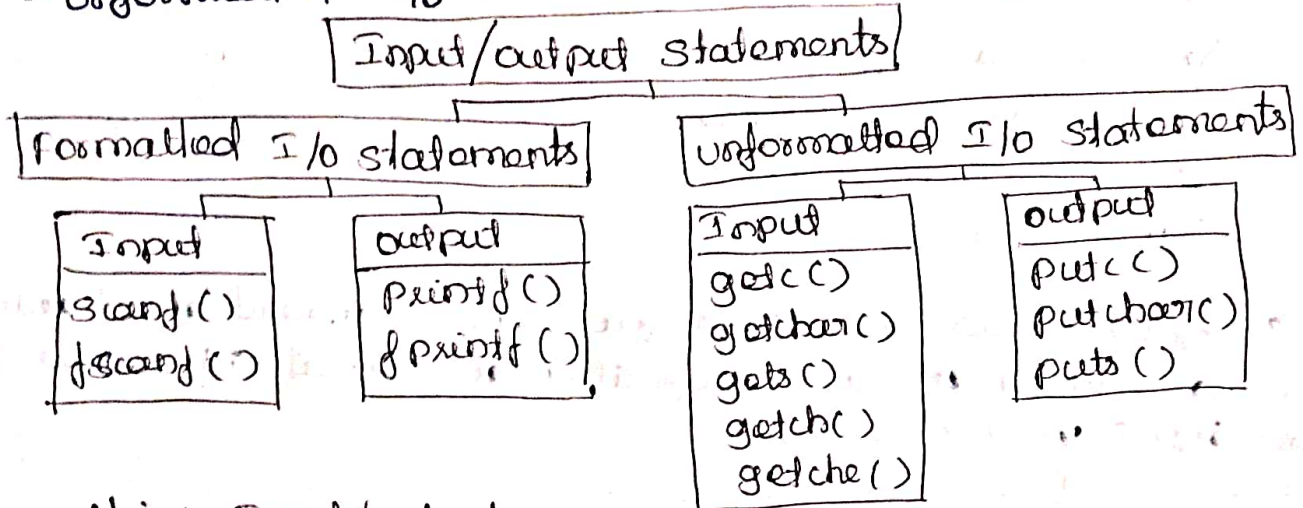 Input/output statements
Formatted I/o statements
unformatted I/o statements
Input
scanf()
fscanf()
output
printf()
fprintf()
Input
getc()
getchar()
gets()
getch()
getche()
output
putc()
putchar()
puts()